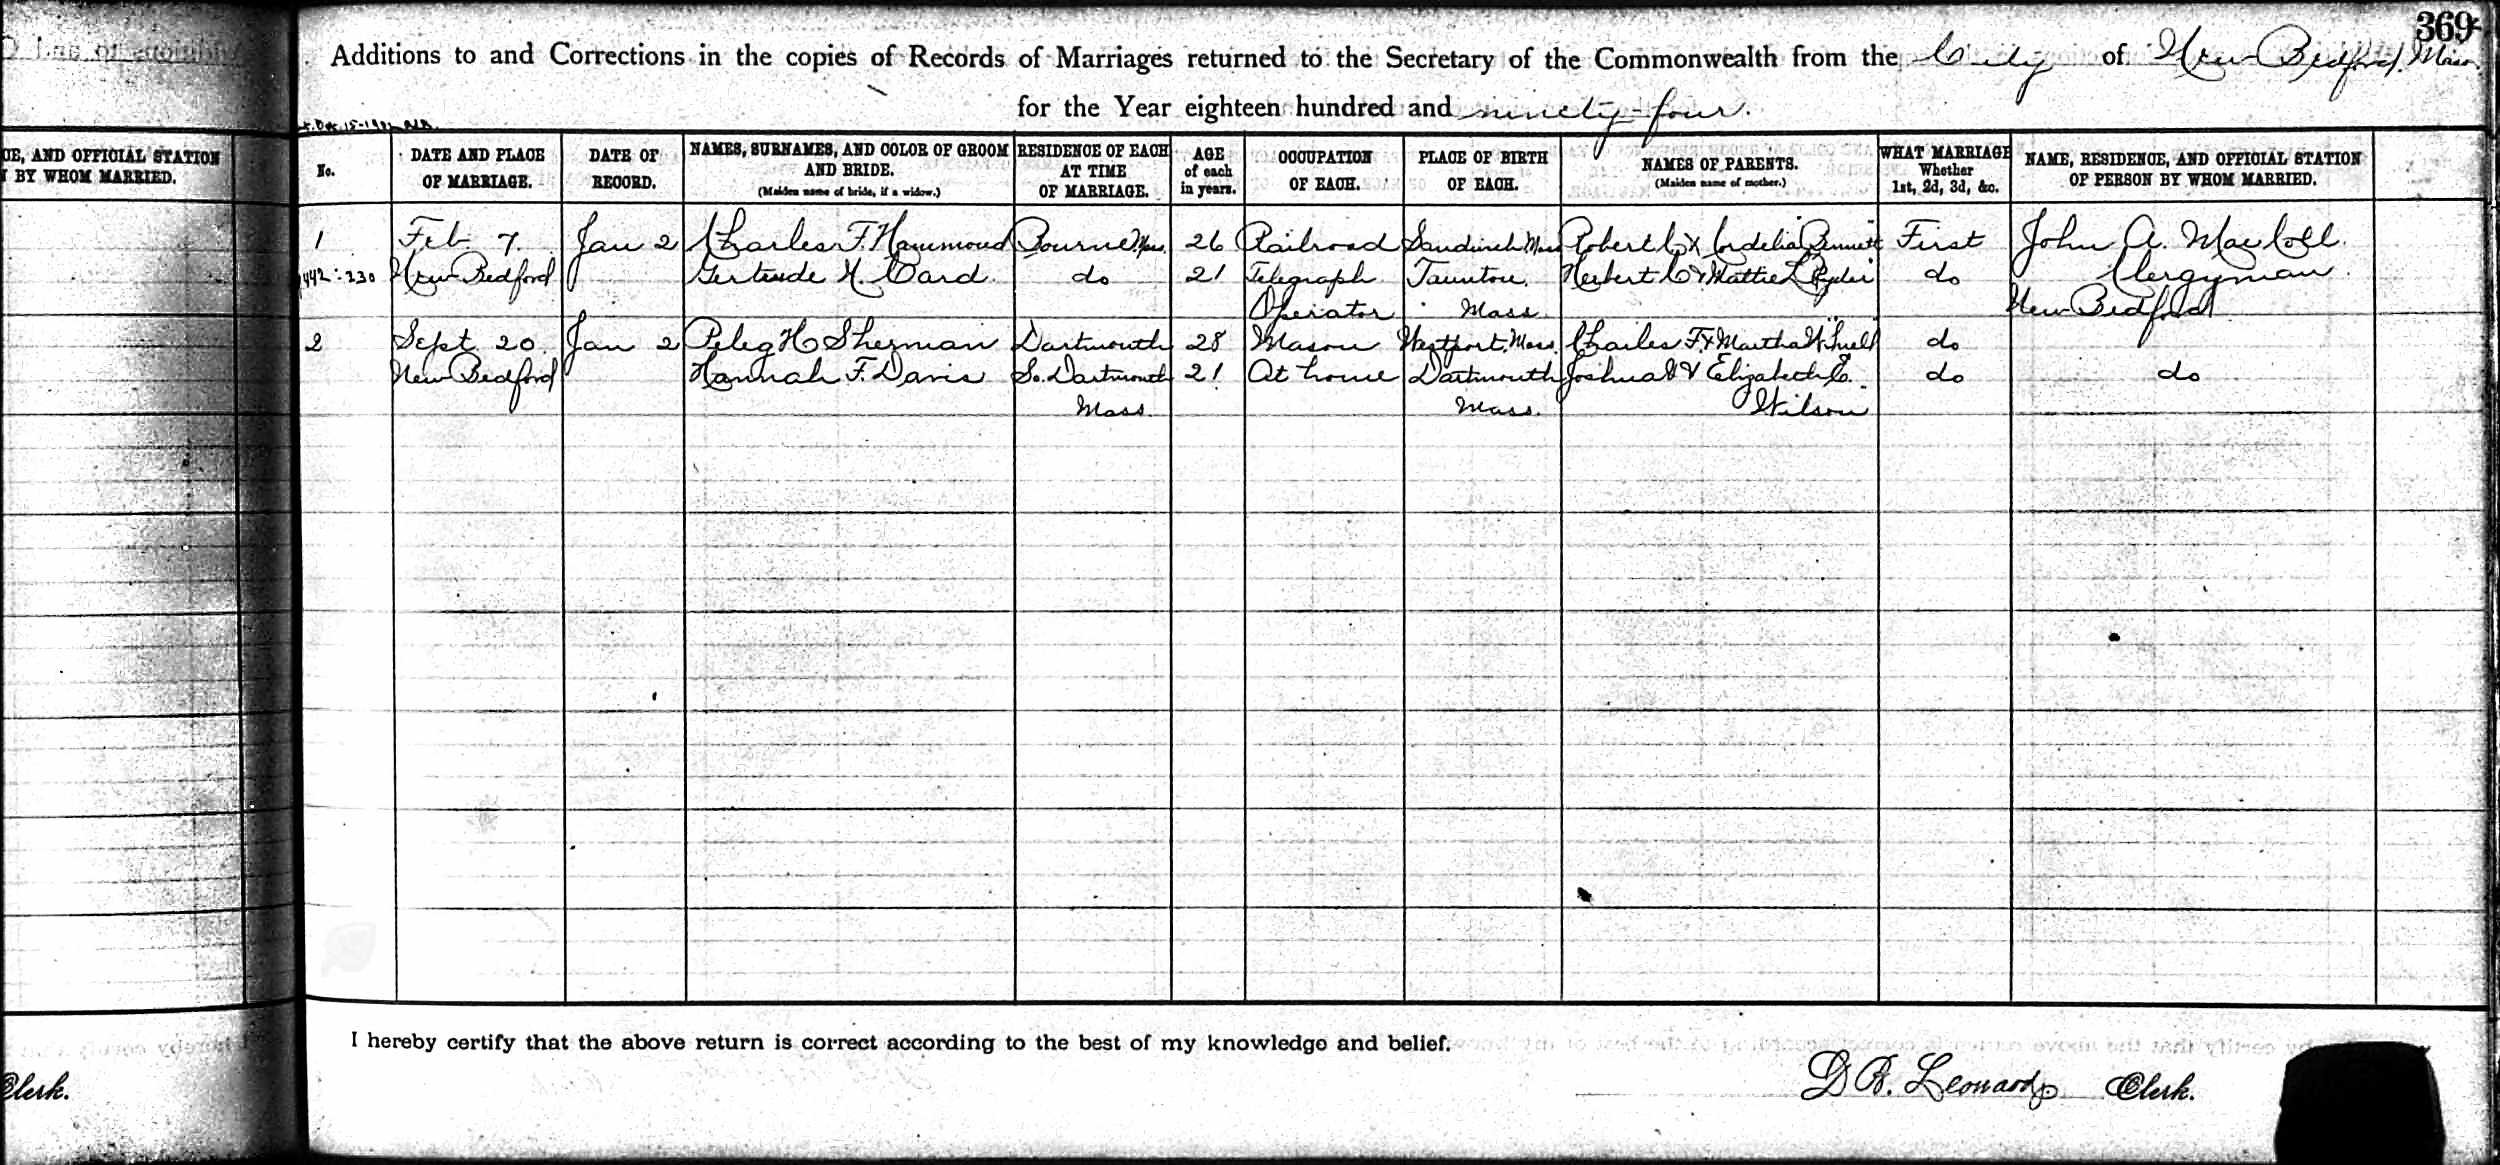 369
Additions to and Corrections in the copies of Records of Marriages returned to the Secretary of the Commonwealth from the City of New Bedford, Mass.
for the Year eighteen hundred and ninety-four.
CE, AND OFFICIAL STATION
BY WHOM MARRIED.
No.
DATE AND PLACE
OF MARRIAGE.
DATE OF
RECORD.
NAMES, SURNAMES, AND COLOR OF GROOM
AND BRIDE.
(Maiden name of bride, if a widow.)
RESIDENCE OF EACH
AT TIME
OF MARRIAGE.
AGE
of each
in years.
OCCUPATION
OF EACH.
PLACE OF BIRTH
OF EACH.
NAMES OF PARENTS.
(Maiden name of mother.)
WHAT MARRIAGE
Whether
1st, 2d, 3d, &c.
NAME, RESIDENCE, AND OFFICIAL STATION
OF PERSON BY WHOM MARRIED.
1 Feb 7. Jan 2 Charles F. Hammond Bourne Mass. 26 Railroad Sandwich Mass Robert C & Cordelia Bennett First John A. MacColl.
442-230 New Bedford Gertrude H. Card. do 21 Telegraph Taunton. Herbert C & Mattie L Ryder do Clergyman
Operator Mass. New Bedford
2 Sept. 20. Jan 2 Peleg H Sherman Dartmouth 28 Mason Westport, Mass. Charles F. & Martha W. Snell do
New Bedford Hannah F. Davis So. Dartmouth 21 At home Dartmouth Joshua & Elizabeth E. do do
Mass. Mass. Wilson
I hereby certify that the above return is correct according to the best of my knowledge and belief.
D B. Leonard Clerk.
Clerk.